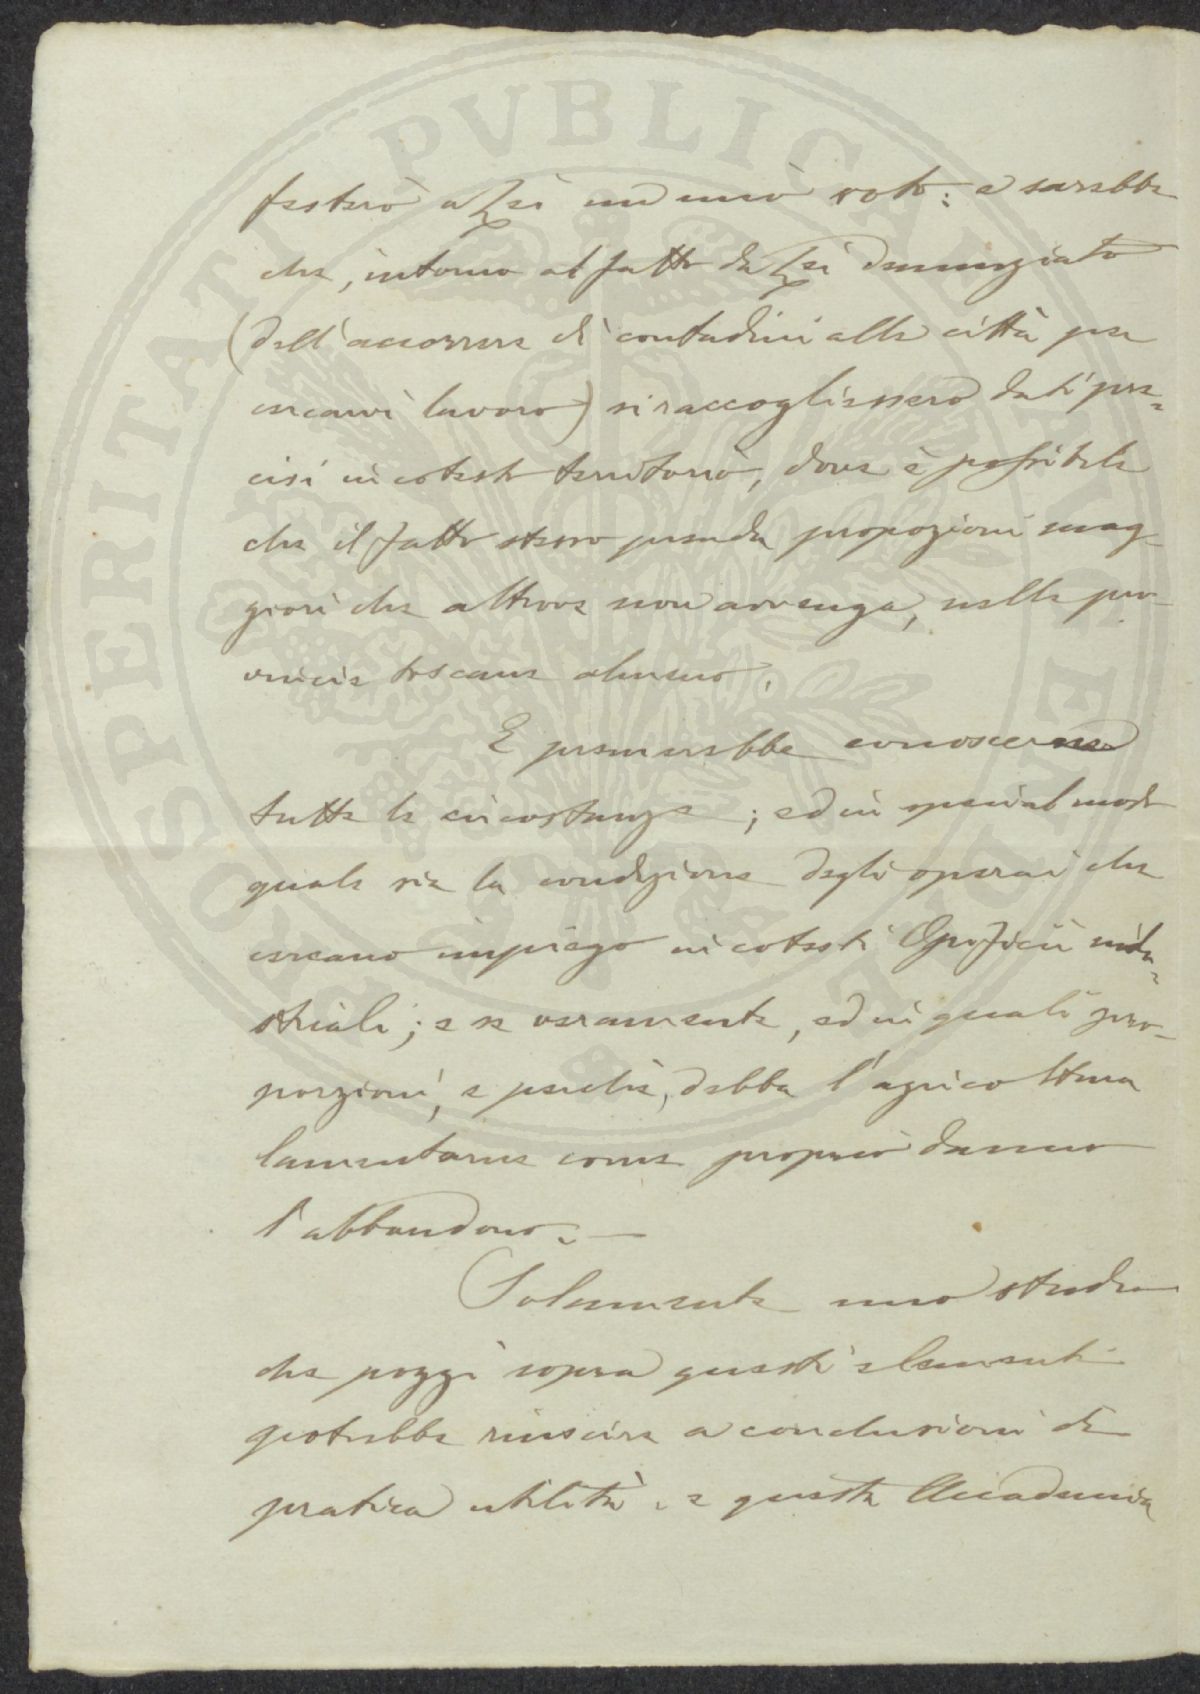 festerò a Lei un mio voto: e sarebbe
che, intorno al fatto da Lei denunziato
(dell'accorrere di contadini alle città per
cercarvi lavoro) si raccogliessero dati pre=
cisi in cotesto territorio, dove è possibile
che il fatto stesso prenda propozioni mag-
giori che altrove non avvenga, nelle pro-
vincie toscane almeno.
E premerebbe conoscerne
tutte le circostanze ; ed in special modo
quale sia la condizione degli operai che
cercano impiego in cotesti Opificii indu=
striali; e se veramente, ed in quali pro-
porzioni, e perchè, debba l'agricoltura
lamentarne come proprio danno
l'abbandono. —
Solamente uno studio
che poggi sopra questi elementi
potrebbe riuscire a conclusioni di
pratica utilità. e questa Accademia
PROSPERITATI PVBLICAE AVGENDAE